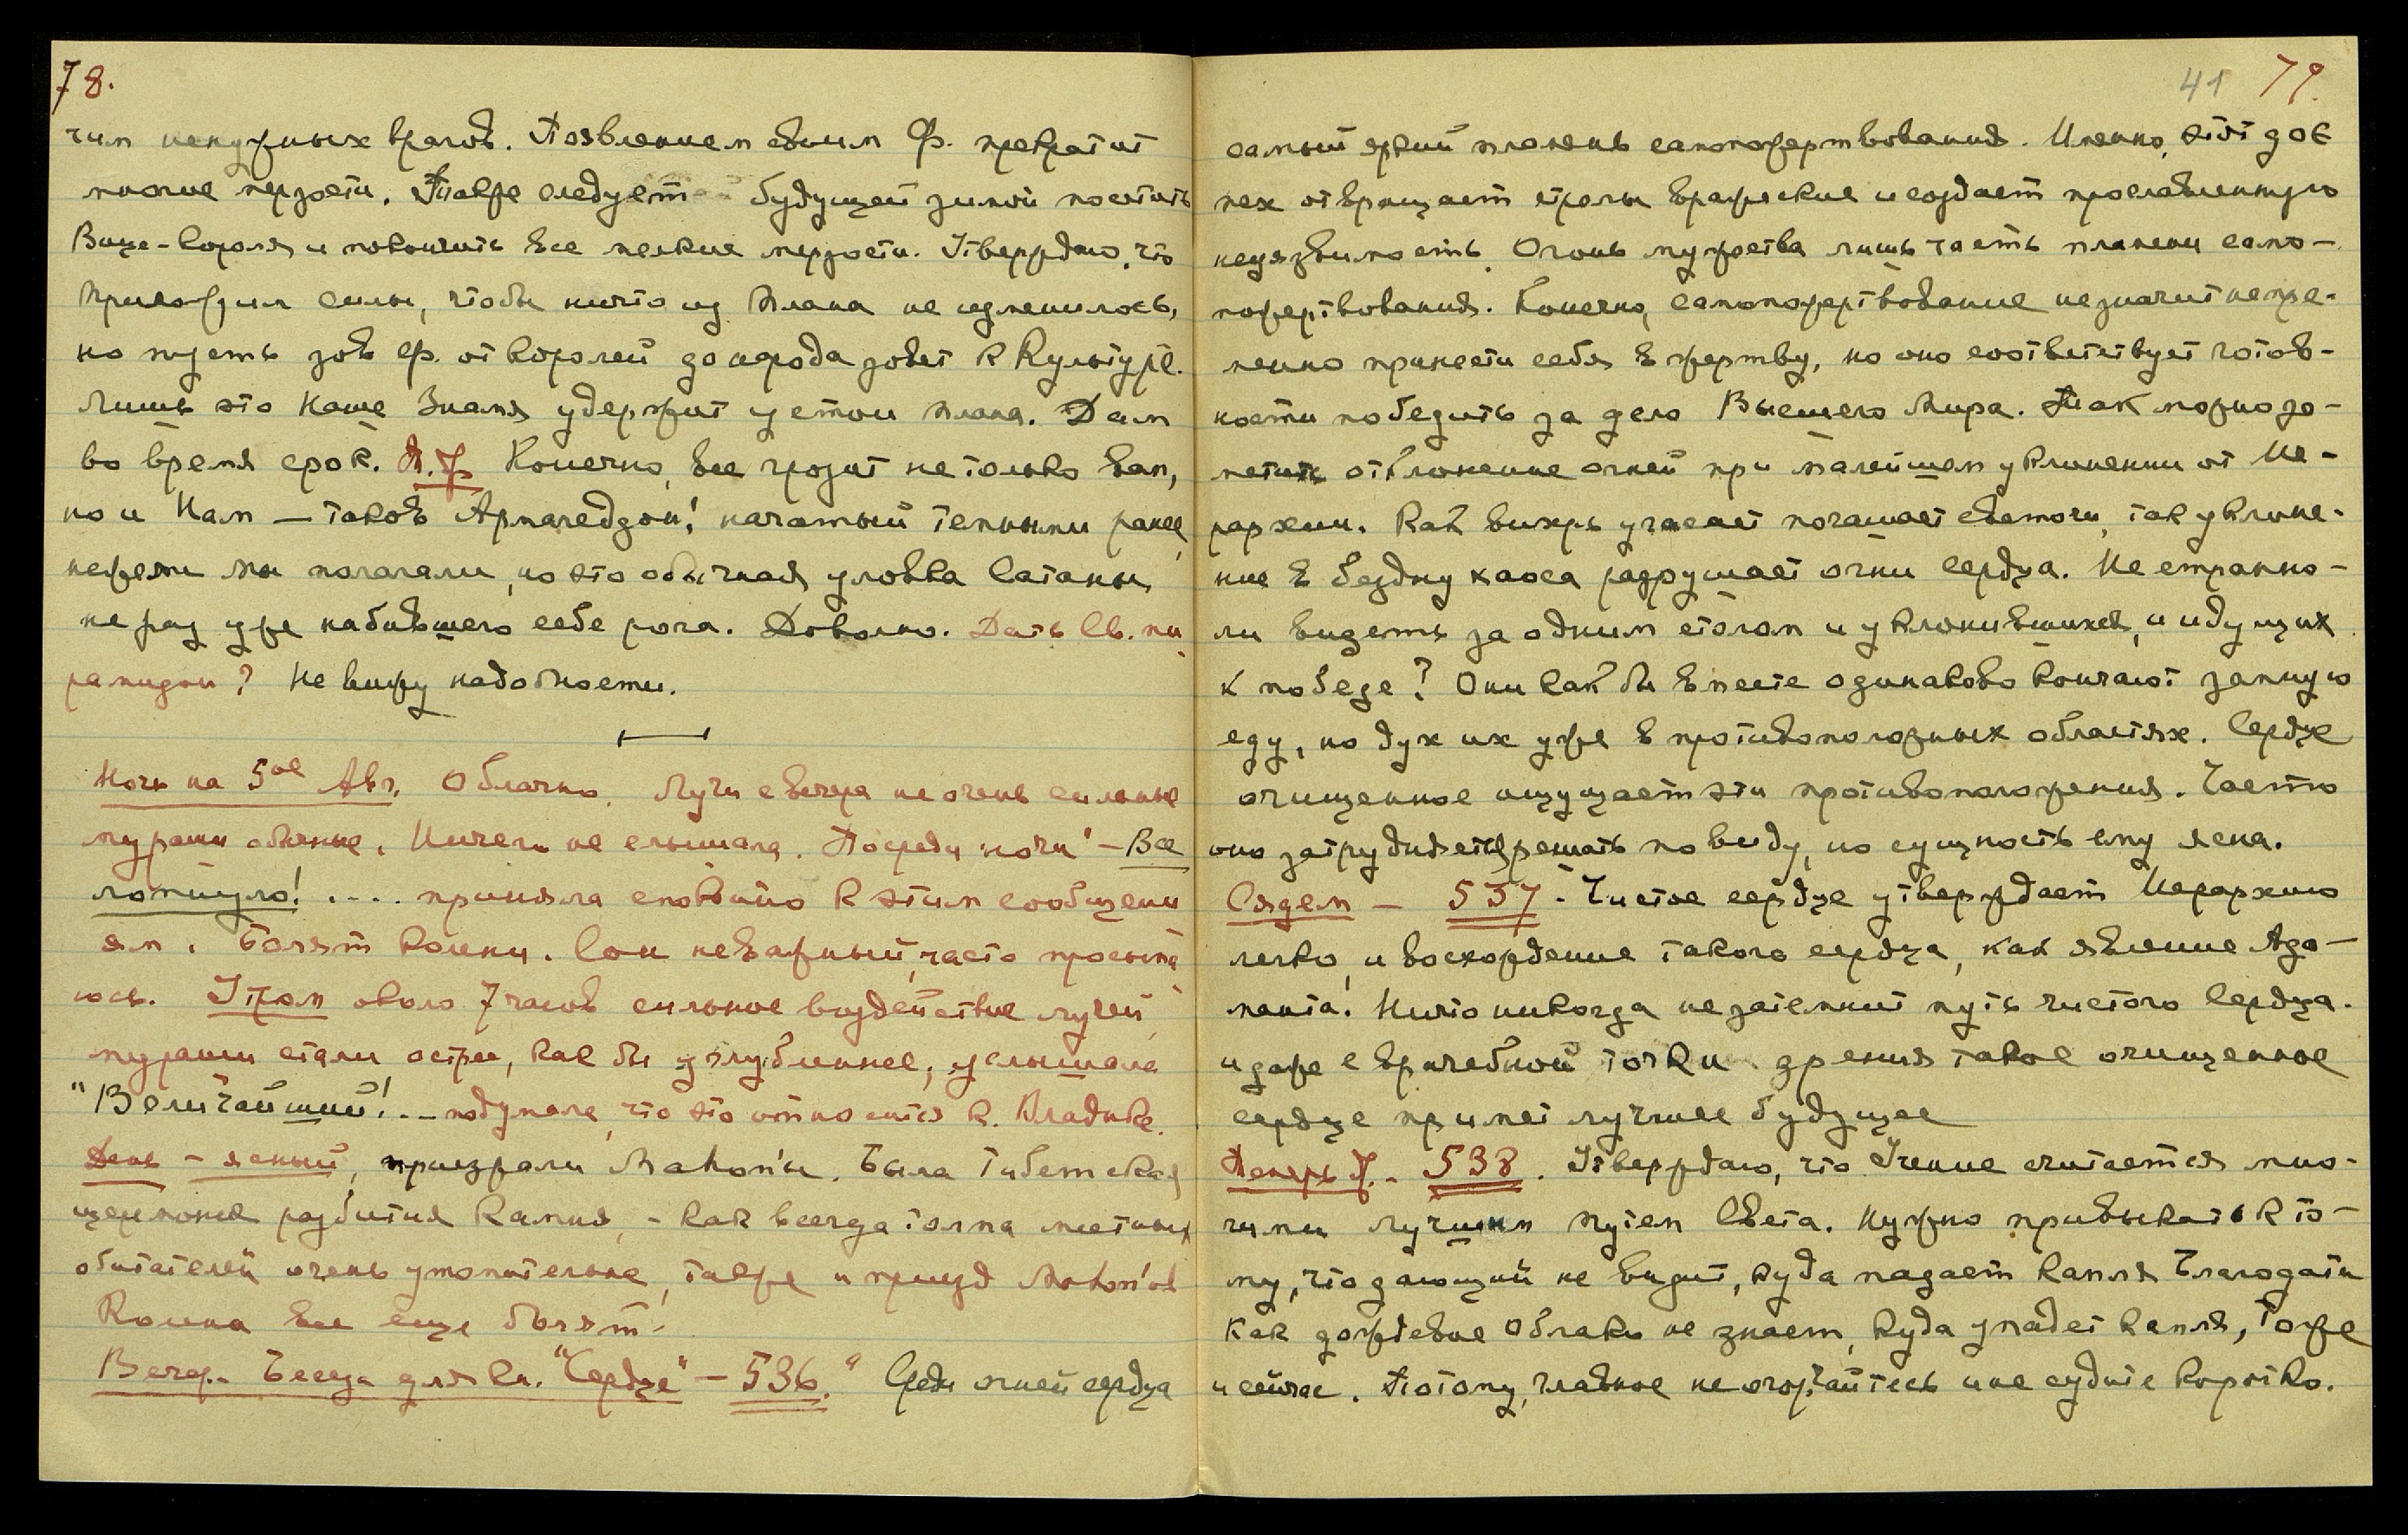 78.
чим ненужных врагов. Появлением своим Ф. прекратит
многие мерзости. Также следует будущей зимой посетить
Вице-Короля и покончить все мелкие мерзости. Утверждаю, что
приложим силы, чтобы ничто из Плана не изменилось,
но пусть зов Ф. от королей до народа зовет к Культуре.
Лишь это Наше Знамя удержит устои плана. Дам
во время срок. Конечно, все грозит не только вам,
но и Нам — таков Армагеддон! начатый темными ранее,
нежели мы полагали, но это обычная уловка Сатаны,
не раз уже набившего себе рога. Довольно. Дать Св. пи
рамидон? Не вижу надобности.
Ночь на 5ое Авг. Облачно. Лучи с вечера не очень сильные
мураши обычные. Ничего не слышала. Посреди ночи – Все
лопнуло! .... приняла спокойно к этим сообщени
ям. Болят колени. Сон неважный, часто просыпа
юсь. Утром около 7 часов сильное воздействие лучей,
мураши стали острее, как бы углубленнее, услышала
"Величайший!.. подумала, что это относится к Владыке.
День – ясный, приезжали Mahon'ы. Была Тибетская
церемония разбития камня, – как всегда толпа местных
обитателей очень утомительна, также и приезд Mahon'ов
Колена все еще болят.
Вечер. Беседа для кн. "Сердце" – 536. " Среди огней сердца
41 79.
самый яркий пламень самопожертвования. Именно, этот дос
пех отвращает стрелы вражеские и создает прославленную
неуязвимость. Огонь мужества лишь часть пламени само-
пожертвования. Конечно, самопожертвование не значит непре-
менно принести себя в жертву, но оно соответствует готов-
ности победить за дело Высшего Мира. Так можно за-
метить отклонение огней при малейшем уклонении от Ие-
рархии. Как вихрь угасает погашает светочи, так уклоне-
ние в бездну хаоса разрушает огни сердца. Не странно-
ли видеть за одним столом и уклонившихся, и идущих
к победе? Они как бы вместе одинаково кончают земную
еду, но дух их уже в противоположных областях. Сердце
очищенное ощущает эти противоположения. Часто
оно затрудняется решать по виду, но сущность ему ясна.
Сядем – 537 - Чистое сердце утверждает Иерархию
легко, и восхождение такого сердца, как явление Ада-
манта. Ничто никогда не затемнит путь чистого Сердца.
и даже с врачебной точки зрения такое очищенное
сердце примет лучшее будущее
Теперь У. - 538. Утверждаю, что Учение считается мно-
гими лучшим путем Света. Нужно привыкать к то-
му, что дающий не видит, куда падает капля Благодати
как дождевое облако не знает, куда упадет капля, тоже
и сейчас. Потому, главное не огорчайтесь и не судите коротко.